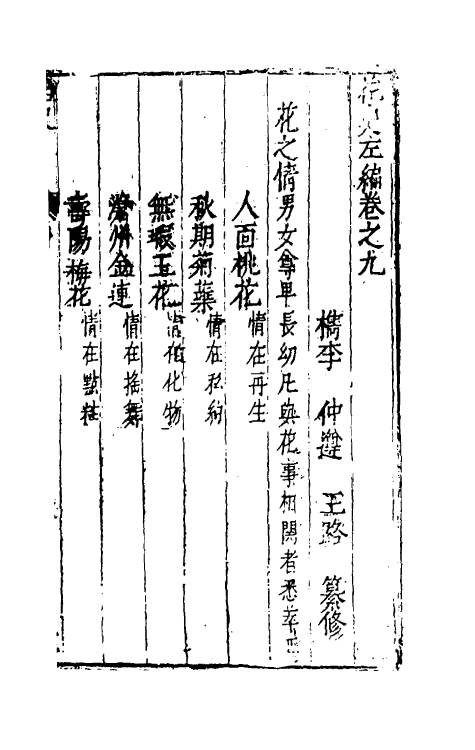 花史左編卷之九
檇李 仲遵 王路 纂修
花之情男女尊卑長幼凡與花事相關者悉萃
人面桃花 情在再生
秋期菊蘂 情在私約
無瑕玉花 情在化物
金蓮 情在搖舞
壽陽梅花 情在點粧